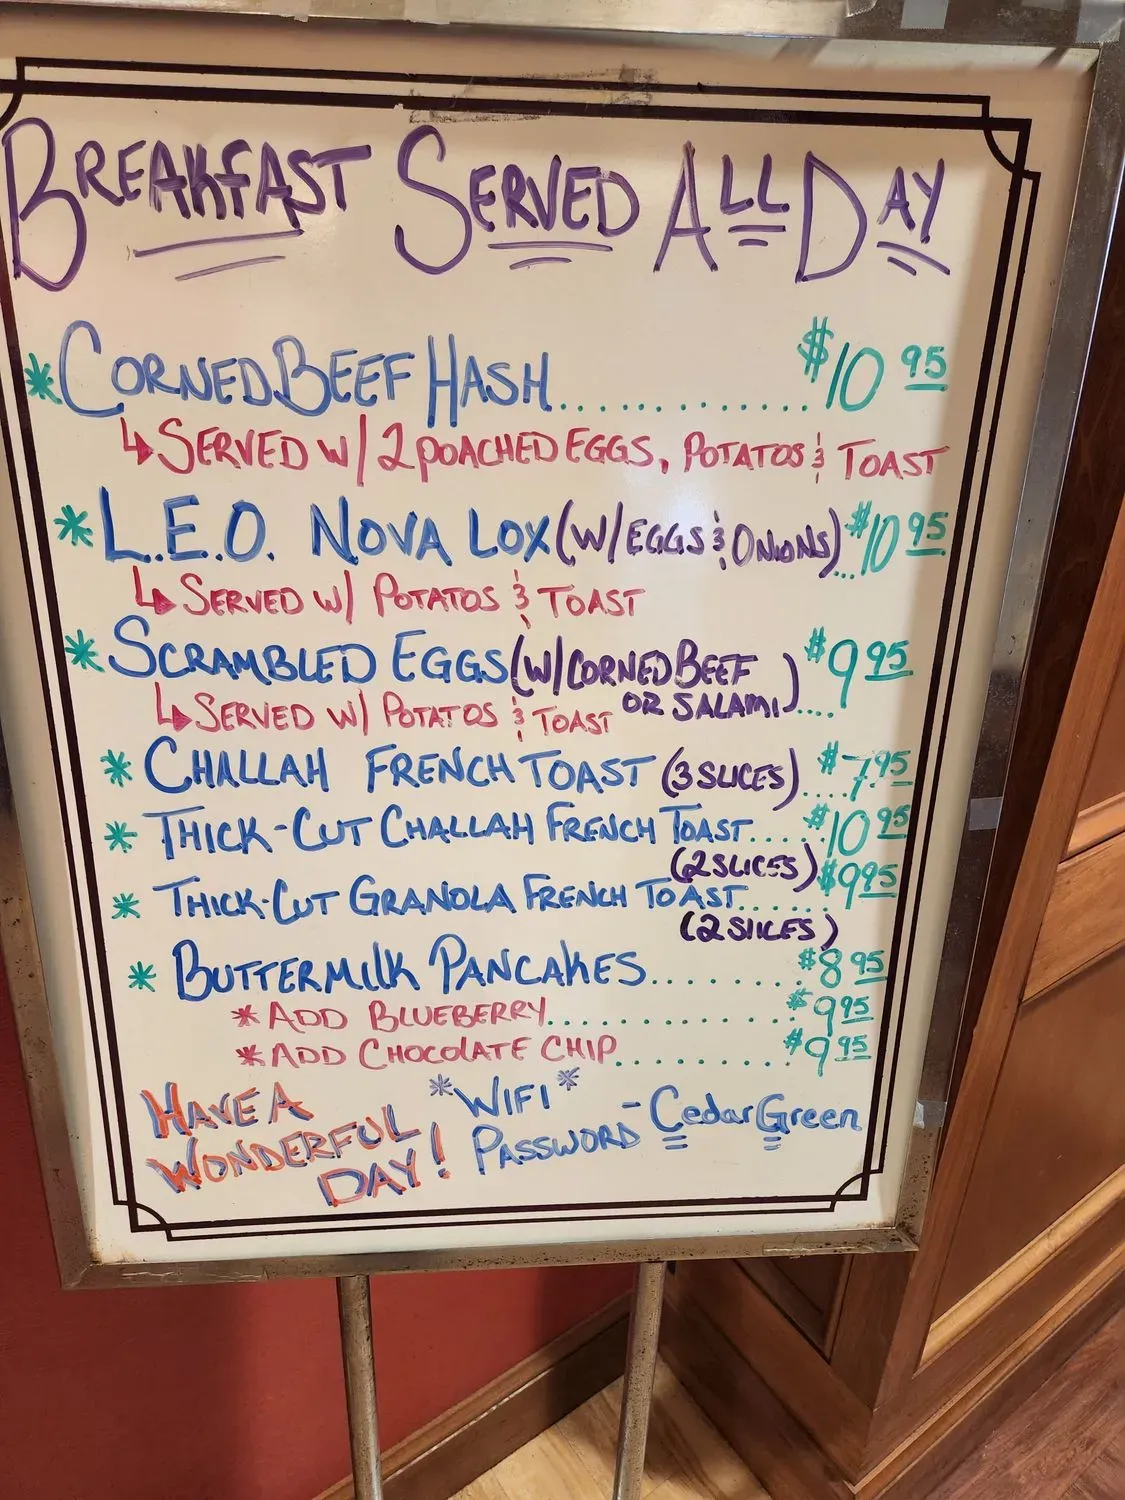 BREAKFAST SERVED ALL DAY
* CORNED BEEF HASH.............. $10 95
↳ SERVED W/ 2 POACHED EGGS, POTATOS & TOAST
* L.E.O. NOVA LOX (W/ EGGS & ONIONS)... $10 95
↳ SERVED W/ POTATOS & TOAST
* SCRAMBLED EGGS (W/ CORNED BEEF OR SALAMI).... $9 95
↳ SERVED W/ POTATOS & TOAST
* CHALLAH FRENCH TOAST (3 SLICES).... $7.95
* THICK-CUT CHALLAH FRENCH TOAST.... $10 95
(2 SLICES)
* THICK-CUT GRANOLA FRENCH TOAST...... $9 95
(2 SLICES)
* BUTTERMILK PANCAKES......... $8 95
* ADD BLUEBERRY............. $9 95
* ADD CHOCOLATE CHIP......... $9 95
HAVE A
WONDERFUL
DAY!
*WIFI*
PASSWORD - CedarGreen